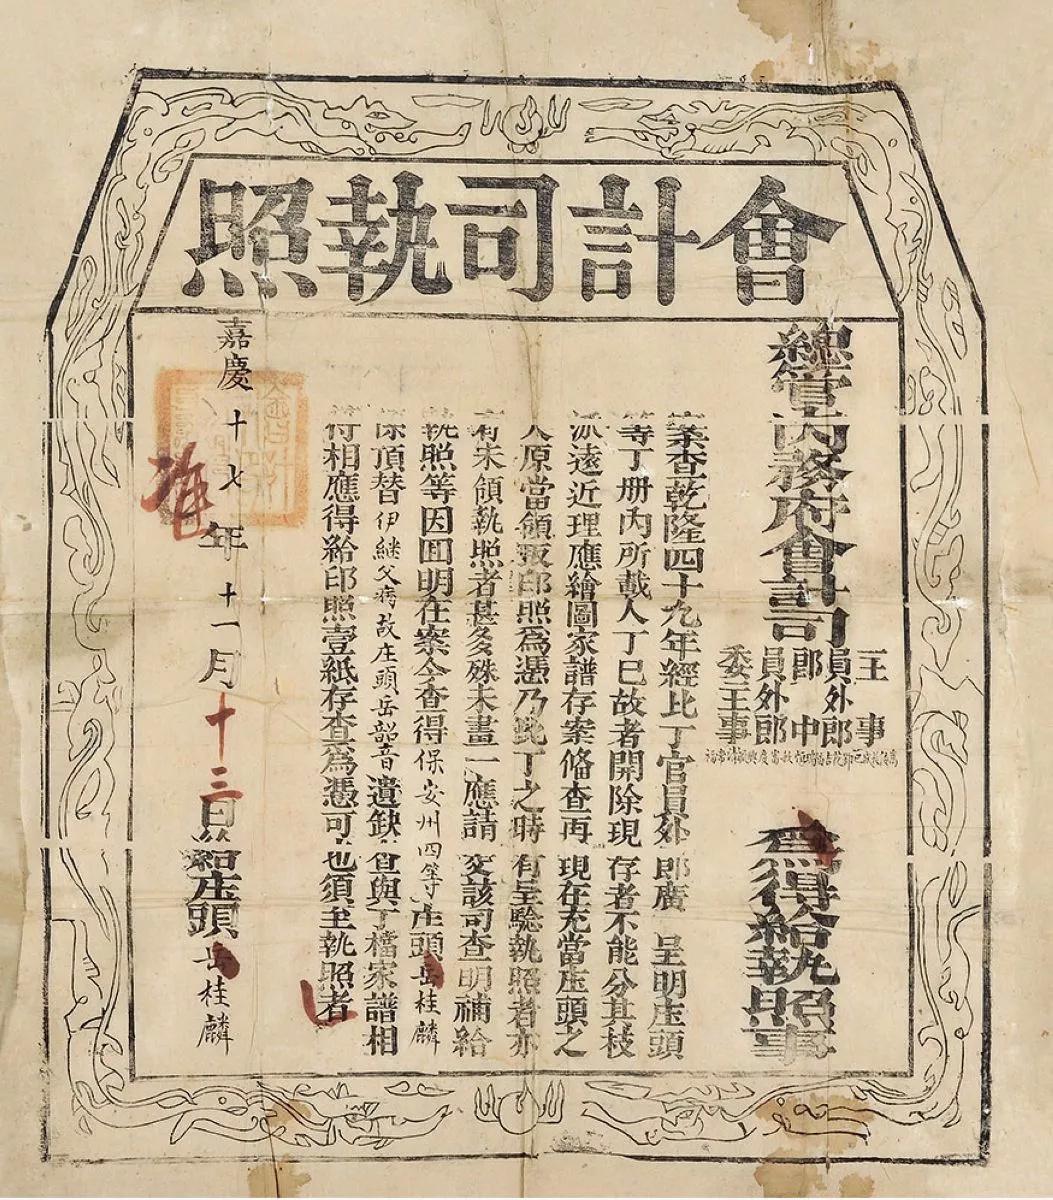 會計司執照
總管內務府會計司
主事
員外郎
郎中
員外郎
委主事
為得給執照事
案查乾隆四十九年經比丁官員外郎廣 呈明庄頭
等丁册內所載人丁已故者開除現存者不能分其枝
派遠近理應繪圖家譜存案俻查再現在充當庄頭之
人原當領取印照為憑乃比丁之時有呈驗執照者亦
有未領執照者甚多殊未畫一應請交該司查明補給
執照等因回明在案今查得保安州四等庄頭岳桂麟
係頂替伊継父病故庄頭岳韶音遺缺查與丁檔家譜相
符相應得給印照壹紙存查為憑可也須至執照者
嘉慶十七年十一月十三日給庄頭岳桂麟
准